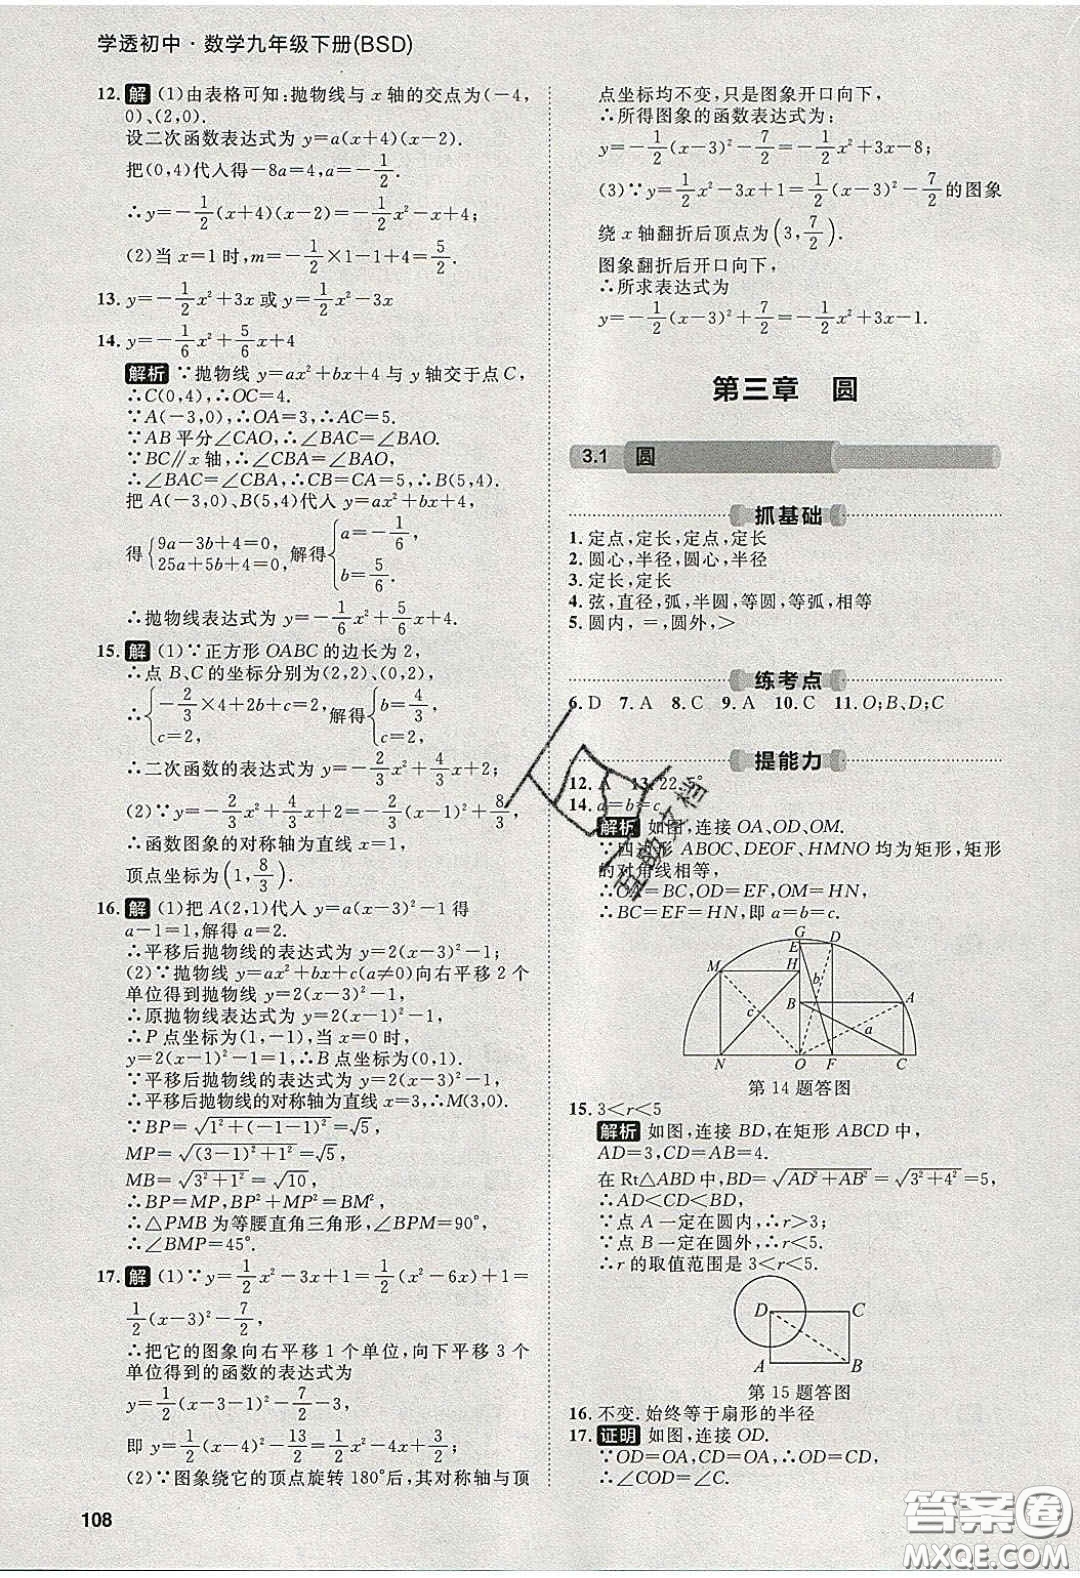 学透初中·数学九年级下册(BSD)
12. 解 (1)由表格可知:抛物线与 x 轴的交点为(−4,
0)、(2,0).
设二次函数表达式为 y=a(x+4)(x−2).
把(0,4)代人得−8a=4,a=−1/2.
∴y=−1/2(x+4)(x−2)=−1/2x²−x+4;
(2)当 x=1 时,m=−1/2×1−1+4=5/2.
13. y=−1/2x²+3x 或 y=1/2x²−3x
14. y=−1/6x²+5/6x+4
解析 ∵抛物线 y=ax²+bx+4 与 y 轴交于点 C,
∴C(0,4),∴OC=4.
∵A(−3,0),∴OA=3,∴AC=5.
∵AB 平分∠CAO,∴∠BAC=∠BAO.
∵BC∥x 轴,∴∠CBA=∠BAO,
∴∠BAC=∠CBA,∴CB=CA=5,∴B(5,4).
把 A(−3,0)、B(5,4)代人 y=ax²+bx+4,
得{9a−3b+4=0, 25a+5b+4=4, 解得{a=−1/6, b=5/6.
∴抛物线表达式为 y=−1/6x²+5/6x+4.
15. 解 (1)∵正方形 OABC 的边长为 2,
∴点 B、C 的坐标分别为(2,2)、(0,2),
∴{−2/3×4+2b+c=2, c=2, 解得{b=4/3, c=2.
∴二次函数的表达式为 y=−2/3x²+4/3x+2;
(2)∵y=−2/3x²+4/3x+2=−2/3(x−1)²+8/3,
∴函数图象的对称轴为直线 x=1,
顶点坐标为(1,8/3).
16. 解 (1)把 A(2,1)代人 y=a(x−3)²−1 得
a−1=1,解得 a=2.
∴平移后抛物线的表达式为 y=2(x−3)²−1;
(2)∵抛物线 y=ax²+bx+c(a≠0)向右平移 2 个
单位得到抛物线 y=2(x−3)²−1,
∴原抛物线表达式为 y=2(x−1)²−1,
∴P 点坐标为(1,−1),当 x=0 时,
y=2(x−1)²−1=1,∴B 点坐标为(0,1).
∵平移后抛物线的表达式为 y=2(x−3)²−1,
∴平移后抛物线的对称轴为直线 x=3,∴M(3,0).
∵BP=√1²+(−1−1)²=√5,
MP=√(3−1)²+1²=√5,
MB=√3²+1²=√10,
∴BP=MP,BP²+MP²=BM²,
∴△PMB 为等腰直角三角形,∠BPM=90°,
∴∠BMP=45°.
17. 解 (1)∵y=1/2x²−3x+1=1/2(x²−6x)+1=
1/2(x−3)²−7/2,
∴把它的图象向右平移 1 个单位,向下平移 3 个
单位得到的函数的表达式为
y=1/2(x−3−1)²−7/2−3,
即 y=1/2(x−4)²−13/2=1/2x²−4x+3/2;
(2)∵图象绕它的顶点旋转 180°后,其对称轴与顶
108
点坐标均不变,只是图象开口向下,
∴所得图象的函数表达式为:
y=−1/2(x−3)²−7/2=−1/2x²+3x−8;
(3)∵y=1/2x²−3x+1=1/2(x−3)²−7/2的图象
绕 x 轴翻折后顶点为(3,7/2).
图象翻折后开口向下,
∴所求表达式为
y=−1/2(x−3)²+7/2=−1/2x²+3x−1.
第三章 圆
3.1 圆
抓基础
1. 定点,定长,定点,定长
2. 圆心,半径,圆心,半径
3. 定长,定长
4. 弦,直径,弧,半圆,等圆,等弧,相等
5. 圆内,=,圆外,>
练考点
6. D 7. A 8. C 9. A 10. C 11. O;B、D;C
提能力
12. A 13. 22.5°
14. a=b=c
解析 如图,连接 OA、OD、OM.
∵四边形 ABOC、DEOF、HMNO 均为矩形,矩形
的对角线相等,
∴OA=BC,OD=EF,OM=HN,
∴BC=EF=HN,即 a=b=c.
G
E D
M H
b
B A
c a
N O F C
第 14 题答图
15. 3<r<5
解析 如图,连接 BD,在矩形 ABCD 中,
AD=3,CD=AB=4.
在 Rt△ABD 中,BD=√AD²+AB²=√3²+4²=5,
∴AD<CD<BD,
∵点 A 一定在圆内,∴r>3;
∵点 B 一定在圆外,∴r<5.
∴r 的取值范围是 3<r<5.
D C
A B
第 15 题答图
16. 不变.始终等于扇形的半径
17. 证明 如图,连接 OD.
∵OD=OA,CD=OA,∴OD=CD,
∴∠COD=∠C.
答案圈
MXQE.COM